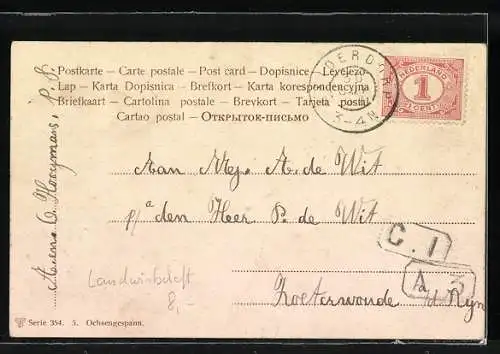 Postkarte – Carte postale – Post card – Dopisnice – Levelező
Lap – Karta Dopisnica – Brefkort – Karta korespondencyjna
Briefkaart – Cartolina postale – Brevkort – Tarjeta postal
Cartao postal – Открытое-письмо
NEDERLAND
1
CENT
3-4N
Aan Mej. A. de Wit
p/a den Heer P. de Wit
C. 1
A 3
Zoeterwoude a/d Rijn
Landwirtschaft
8,-
Serie 354. 5. Ochsengespann.